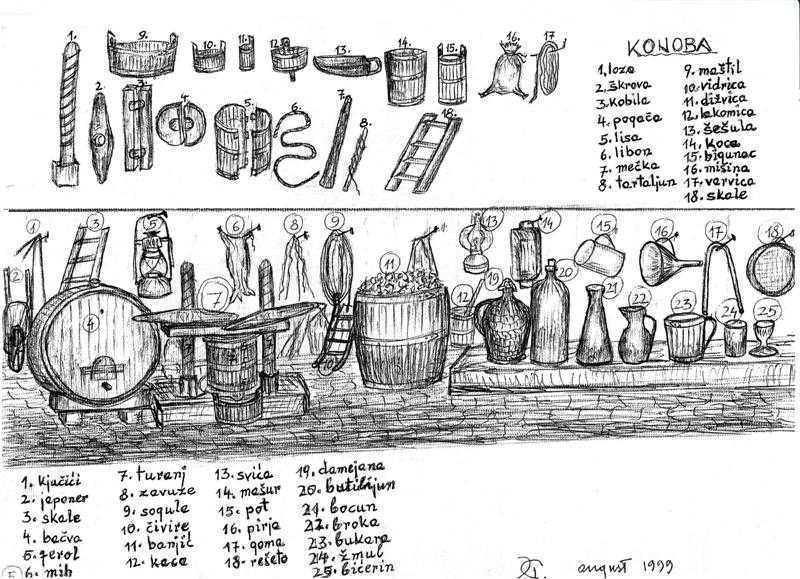 KONOBA
1. loza
2. škrova
3. kobila
4. pogača
5. lisa
6. libon
7. mečka
8. tartaljun
9. maštil
10. vidrica
11. dižvica
12. lakomica
13. šešula
14. koca
15. bigunac
16. mišina
17. varvica
18. skale
1.
9.
10.
11.
12
13.
14.
15.
16.
17
2
3.
4.
5.
6.
7.
8.
18.
1
2
3
4
5
6
7
8
9
10
11
12
13
14
15
16
17
18
19
20
21
22
23
24
25
1. kjačići
2. japoner
3. skale
4. bačva
5. ferol
6. mih
7. turanj
8. zavuze
9. sogule
10. čivire
11. banjil
12. kaca
13. svića
14. mašur
15. pot
16. pirja
17. goma
18. rešeto
19. damejana
20. butiljun
21. bocun
22. broka
23. bukara
24. žmul
25. bićerin
august 1999